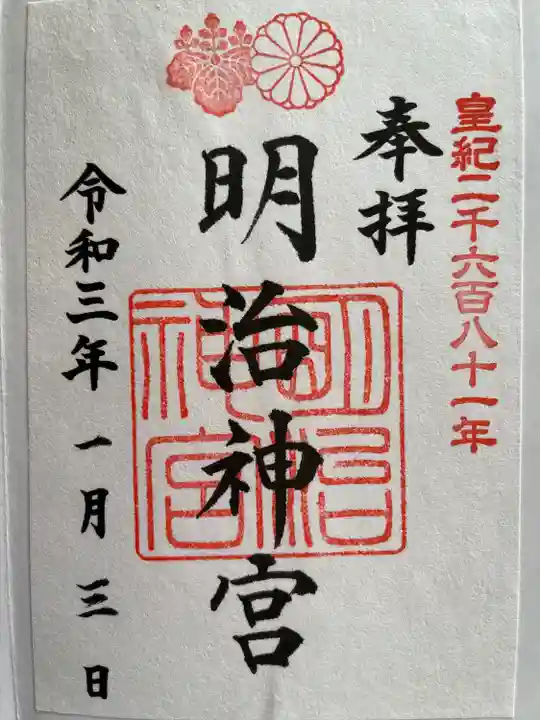 皇紀二千六百八十一年
奉拝
明治神宮
明治神宮
令和三年一月三日